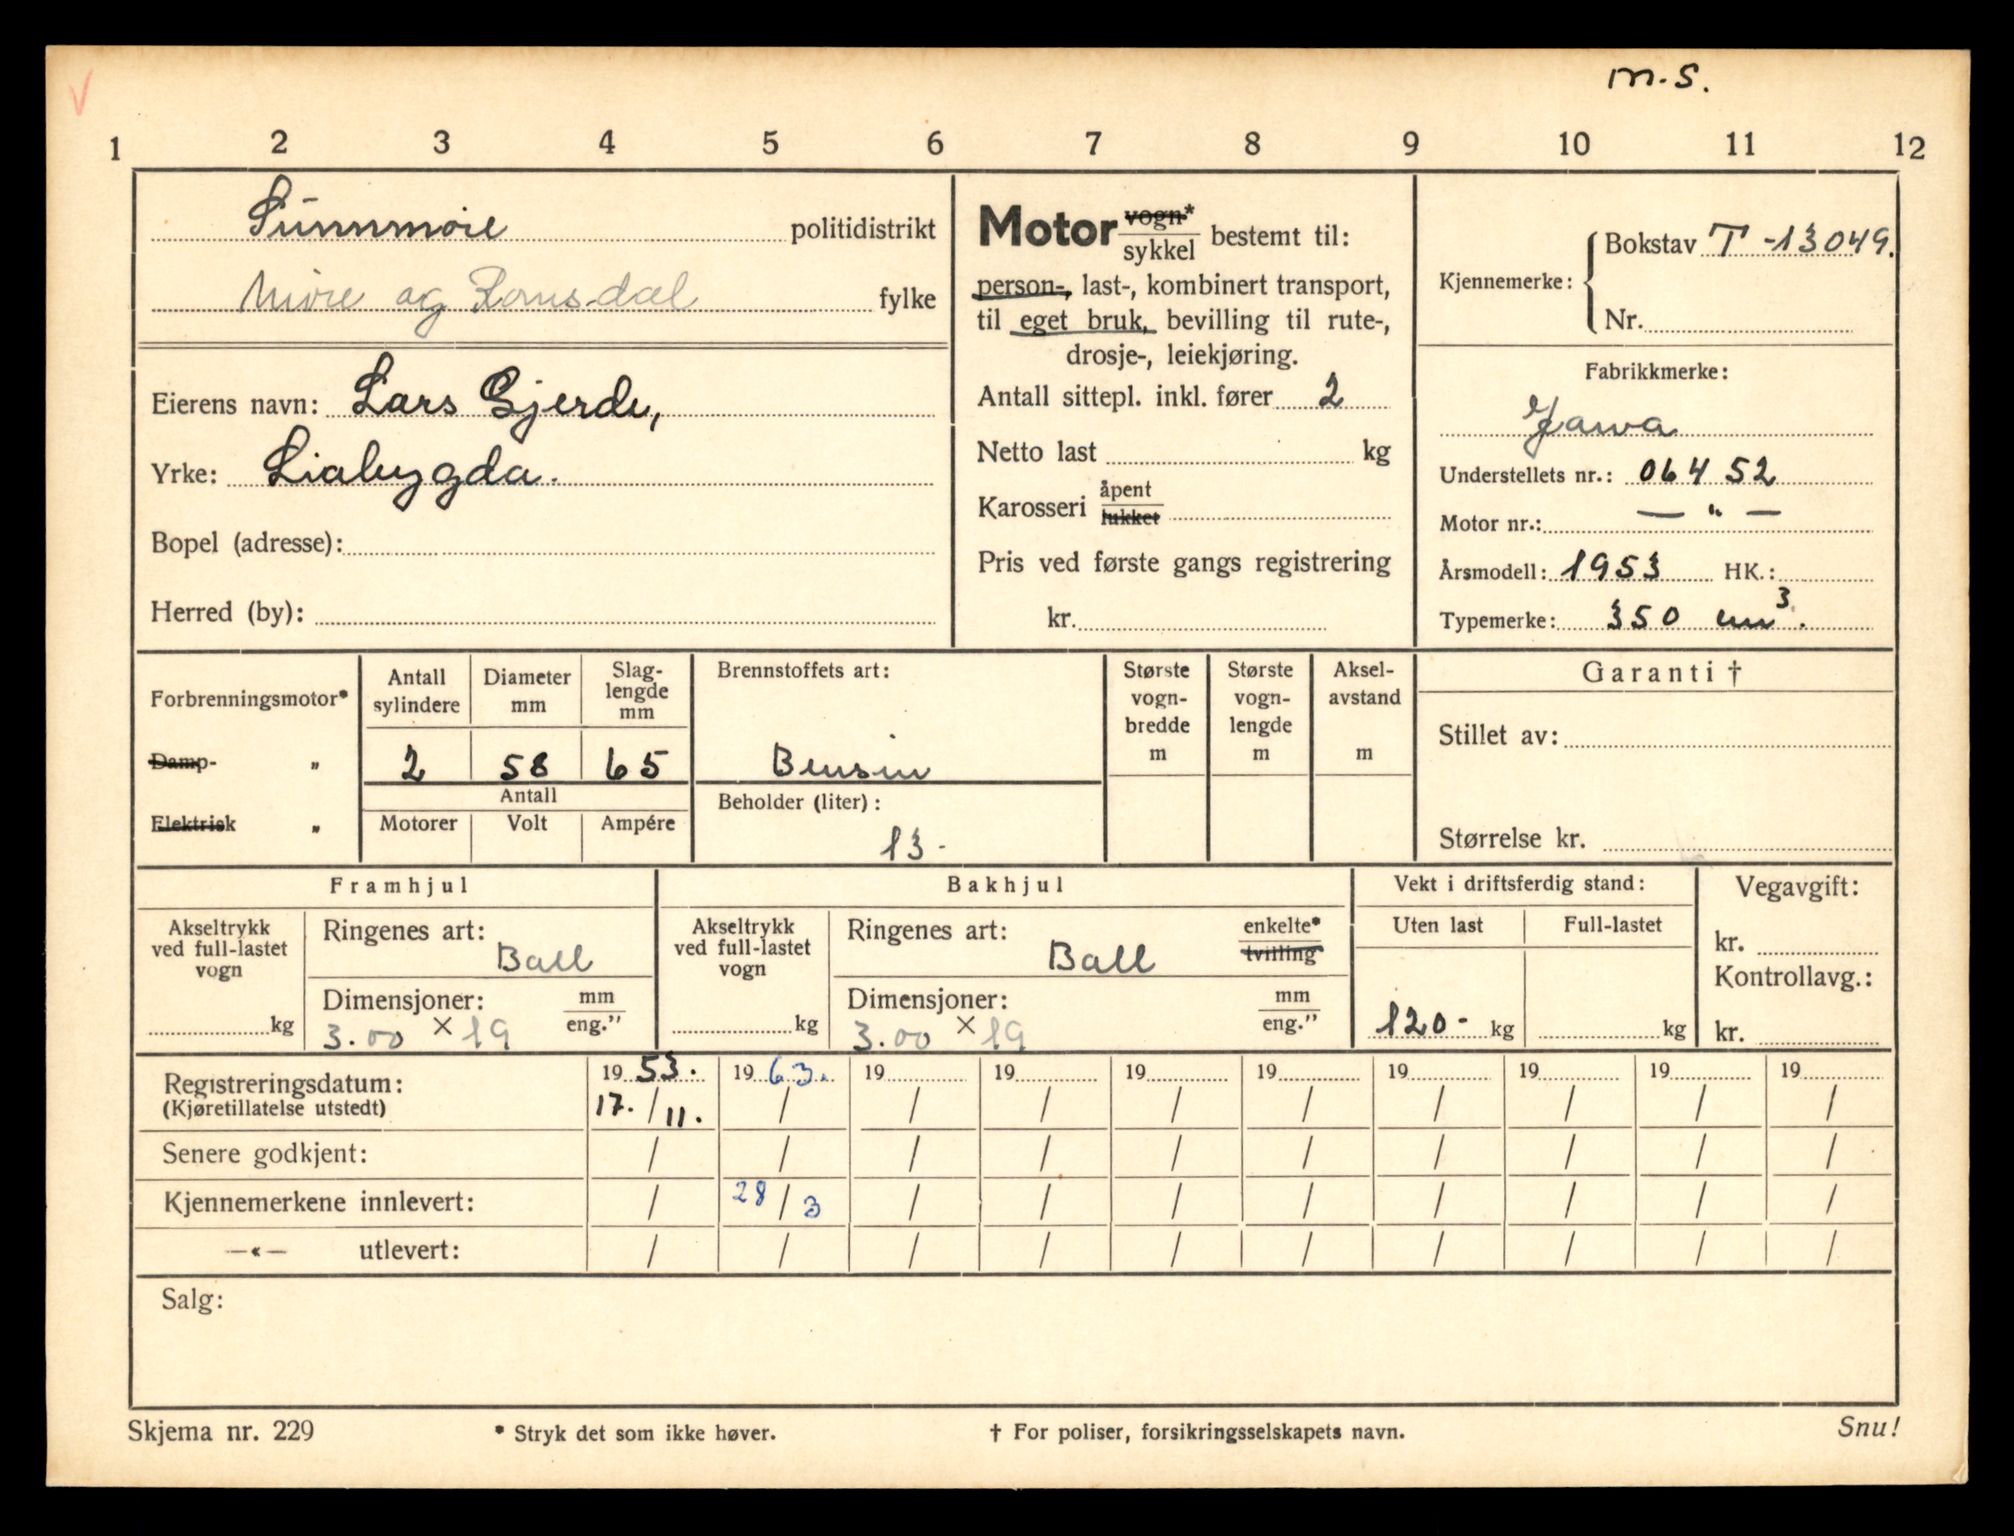 m.s.
1 2 3 4 5 6 7 8 9 10 11 12
Sunnmøre politidistrikt
Møre og Romsdal fylke
Eierens navn: Lars Gjerde,
Yrke: Liabygda.
Bopel (adresse):
Herred (by):
Motor vogn* / sykkel bestemt til:
person-, last-, kombinert transport,
til eget bruk, bevilling til rute-,
drosje-, leiekjøring.
Antall sittepl. inkl. fører 2
Netto last kg
Karosseri åpent / lukket
Pris ved første gangs registrering
kr.
Kjennemerke: Bokstav T-13049.
Nr.
Fabrikkmerke:
Jawa
Understellets nr.: 06452
Motor nr.: — " —
Årsmodell: 1953 HK.:
Typemerke: 350 cm³.
Forbrenningsmotor*
Damp- "
Elektrisk "
Antall sylindere 2
Diameter mm 58
Slag-lengde mm 65
Antall
Motorer Volt Ampére
Brennstoffets art:
Bensin
Beholder (liter):
13-
Største vogn-bredde m
Største vogn-lengde m
Aksel-avstand m
Garanti †
Stillet av:
Størrelse kr.
Framhjul
Akseltrykk
ved full-lastet
vogn
kg
Ringenes art:
Ball
Dimensjoner: mm / eng."
3.00 × 19
Bakhjul
Akseltrykk
ved full-lastet
vogn
kg
Ringenes art: enkelte* / tvilling
Ball
Dimensjoner: mm / eng."
3.00 × 19
Vekt i driftsferdig stand:
Uten last Full-lastet
120- kg kg
Vegavgift:
kr.
Kontrollavg.:
kr.
Registreringsdatum: 19 53. 19 63. 19 19 19 19 19 19 19 19
(Kjøretillatelse utstedt) 17. / 11. / / / / / / / / /
Senere godkjent: / / / / / / / / / /
Kjennemerkene innlevert: / 28 / 3 / / / / / / / /
—«— utlevert: / / / / / / / / / /
Salg:
Skjema nr. 229 * Stryk det som ikke høver. † For poliser, forsikringsselskapets navn. Snu!